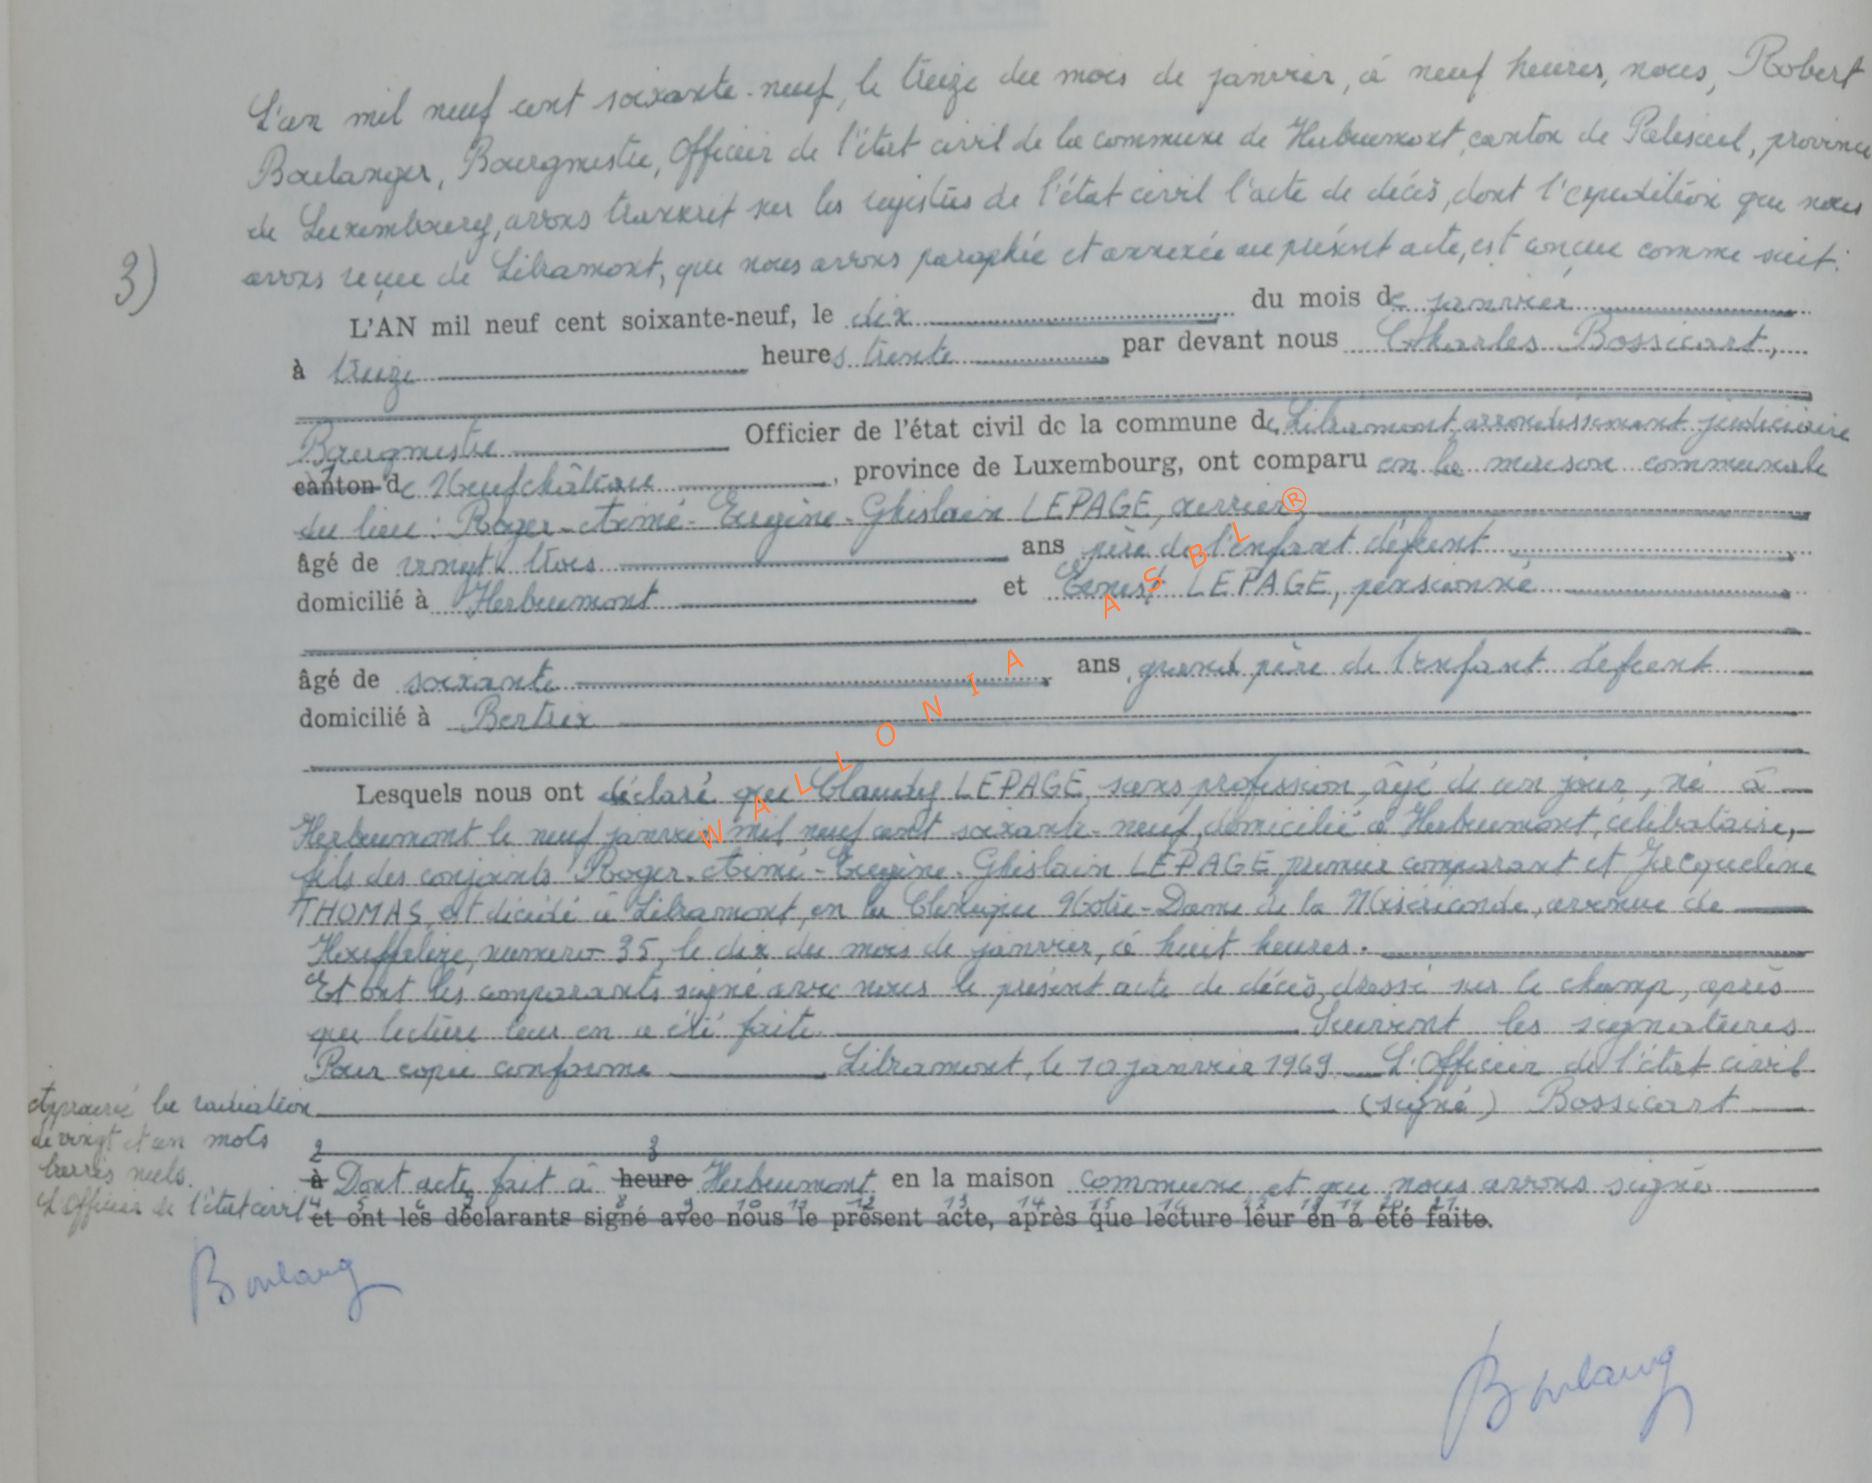 L'an mil neuf cent soixante-neuf, le treize du mois de janvier, à neuf heures, nous, Robert
Boulanger, Bourgmestre, Officier de l'état civil de la commune de Herbeumont, canton de Paliseul, province
de Luxembourg, avons transcrit sur les registres de l'état civil l'acte de décès, dont l'expédition que nous
avons reçue de Libramont, que nous avons paraphée et annexée au présent acte, est conçue comme suit:
3)
L'AN mil neuf cent soixante-neuf, le dix du mois de janvier
à treize heures trente par devant nous Charles Bossicart,
Bourgmestre Officier de l'état civil de la commune de Libramont, arrondissement judiciaire
canton de Neufchâteau, province de Luxembourg, ont comparu en la maison communale
du lieu: Roger-Aimé-Eugène-Ghislain LEPAGE, ouvrier,
âgé de vingt trois ans père de l'enfant défunt
domicilié à Herbeumont et Ernest LEPAGE, pensionné
âgé de soixante ans, grand père de l'enfant défunt
domicilié à Bertrix
Lesquels nous ont déclaré que Claudy LEPAGE, sans profession, âgé de un jour, né à
Herbeumont le neuf janvier mil neuf cent soixante-neuf, domicilié à Herbeumont, célibataire,
fils des conjoints Roger-Aimé-Eugène-Ghislain LEPAGE, premier comparant et Jacqueline
THOMAS, est décédé à Libramont, en la Clinique Notre-Dame de la Miséricorde, avenue de
Houffalize, numéro 35, le dix du mois de janvier, à huit heures.
Et ont les comparants signé avec nous le présent acte de décès, dressé sur le champ, après
que lecture leur en a été faite. Suivent les signatures
Pour copie conforme Libramont, le 10 janvier 1969 L'Officier de l'état civil
(signé) Bossicart
Approuvé la radiation
de vingt et un mots
barrés nuls.
L'Officier de l'état civil
2 3
à Dont acte, fait à heure Herbeumont, en la maison commune et que nous avons signé
4 5 6 7 8 9 10 11 12 13 14 15 16 17 18 19 20 21
et ont les déclarants signé avec nous le présent acte, après que lecture leur en a été faite.
Boulang
Boulang
WALLONIA ASBL ®